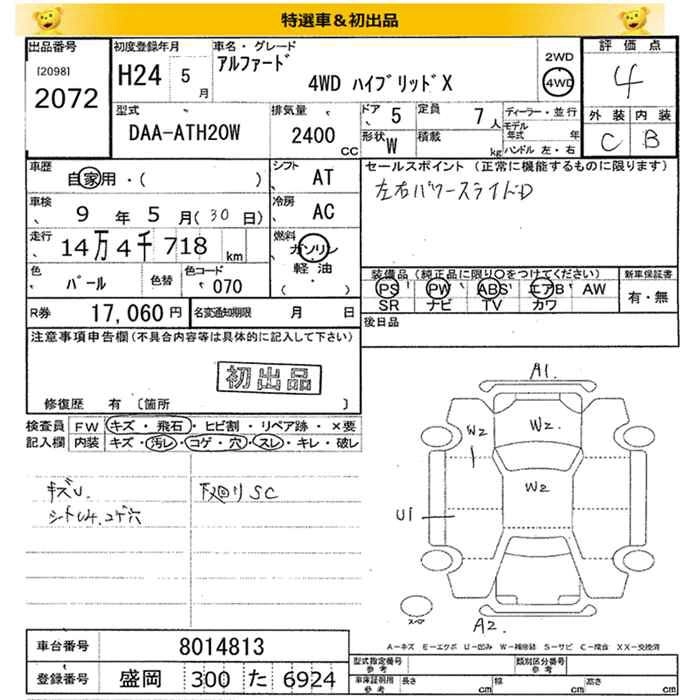 特選車＆初出品
出品番号 [2098] 2072
初度登録年月 H24 5月
車名・グレード アルファード 4WD ハイブリッドX
2WD 4WD
評価点 4
外装 内装
C B
型式 DAA-ATH20W
排気量 2400 CC
ドア 5
定員 7人
形状 W
積載 kg
ディーラー・並行
モデル年式 年
ハンドル 左・右
車歴 自家用・( )
シフト AT
セールスポイント (正常に機能するものに限ります)
左右パワースライドD
車検 9年 5月(30日)
冷房 AC
走行 14万4千718km
燃料 ガソリン 軽油 ( ・ )
色 パール 色替 色コード 070
装備品 (純正品に限り○をつけてください)
PS PW ABS エアB AW
SR ナビ TV カワ
新車保証書 有・無
R券 17,060円 名変通知期限 月 日
後日品
注意事項申告欄 (不具合内容等は具体的に記入して下さい)
初出品
修復歴 有 〔箇所 〕
検査員記入欄
FW キズ・飛石・ヒビ割・リペア跡・×要
内装 キズ・汚レ・コゲ・穴・スレ・キレ・破レ
キズU.
下廻りSC
A1.
W2
W2.
W2
U1
A2.
スペア
A－キズ E－エクボ U－凹み W－補修跡 S－サビ C－腐食 XX－交換済
車台番号 8014813
登録番号 盛岡 300 た 6924
型式指定番号 参考
類別区分番号 参考
車庫証明用 参考 長さ cm 幅 cm 高さ cm